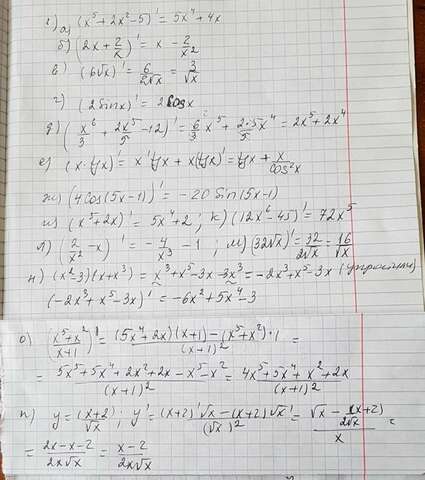 2) а) (x⁵ + 2x² - 5)' = 5x⁴ + 4x
б) (2x + 2/x)' = x - 2/x²
в) (6√x)' = 6/(2√x) = 3/√x
г) (2 sin x)' = 2 cos x
д) (x⁶/3 + 2x⁵/5 - 12)' = 6/3 x⁵ + 2·5/5 x⁴ = 2x⁵ + 2x⁴
е) (x·tgx)' = x'tgx + x(tgx)' = tgx + x/cos²x
ж) (4cos(5x-1))' = -20 sin(5x-1)
и) (x⁵ + 2x)' = 5x⁴ + 2; к) (12x⁶ - 45)' = 72x⁵
л) (2/x² - x)' = -4/x³ - 1; м) (32√x)' = 32/(2√x) = 16/√x
н) (x² - 3)(x + x³) = x³ + x⁵ - 3x - 3x³ = -2x³ + x⁵ - 3x (упростили)
(-2x³ + x⁵ - 3x)' = -6x² + 5x⁴ - 3
о) ((x⁵ + x²)/(x+1))' = ((5x⁴ + 2x)(x+1) - (x⁵ + x²)·1)/(x+1)² =
= (5x⁵ + 5x⁴ + 2x² + 2x - x⁵ - x²)/(x+1)² = (4x⁵ + 5x⁴ + x² + 2x)/(x+1)²
п) y = (x+2)/√x; y' = ((x+2)'√x - (x+2)√x')/(√x)² = (√x - 1(x+2)/(2√x))/x =
= (2x - x - 2)/(2x√x) = (x-2)/(2x√x)